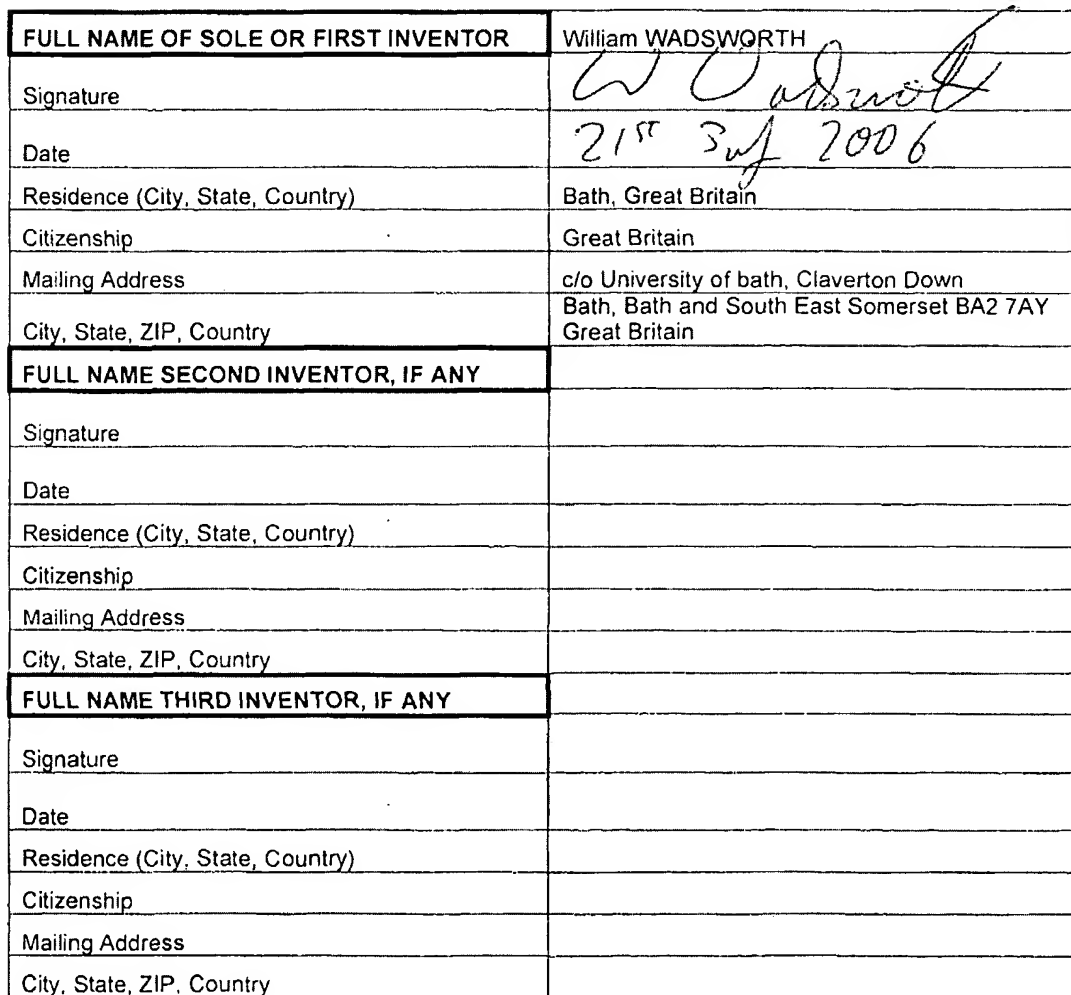 FULL NAME OF SOLE OR FIRST INVENTOR William WADSWORTH
Signature W Wadsworth
Date 21ST July 2006
Residence (City, State, Country) Bath, Great Britain
Citizenship Great Britain
Mailing Address c/o University of bath, Claverton Down
City, State, ZIP, Country Bath, Bath and South East Somerset BA2 7AY
Great Britain
FULL NAME SECOND INVENTOR, IF ANY
Signature
Date
Residence (City, State, Country)
Citizenship
Mailing Address
City, State, ZIP, Country
FULL NAME THIRD INVENTOR, IF ANY
Signature
Date
Residence (City, State, Country)
Citizenship
Mailing Address
City, State, ZIP, Country